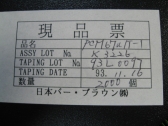 現品票
品名 PCM67U/T-1
ASSY LOT No K3226
TAPING LOT No 93L0097
TAPING DATE 93.11.16
数量 2000 個
日本バー・ブラウン㈱